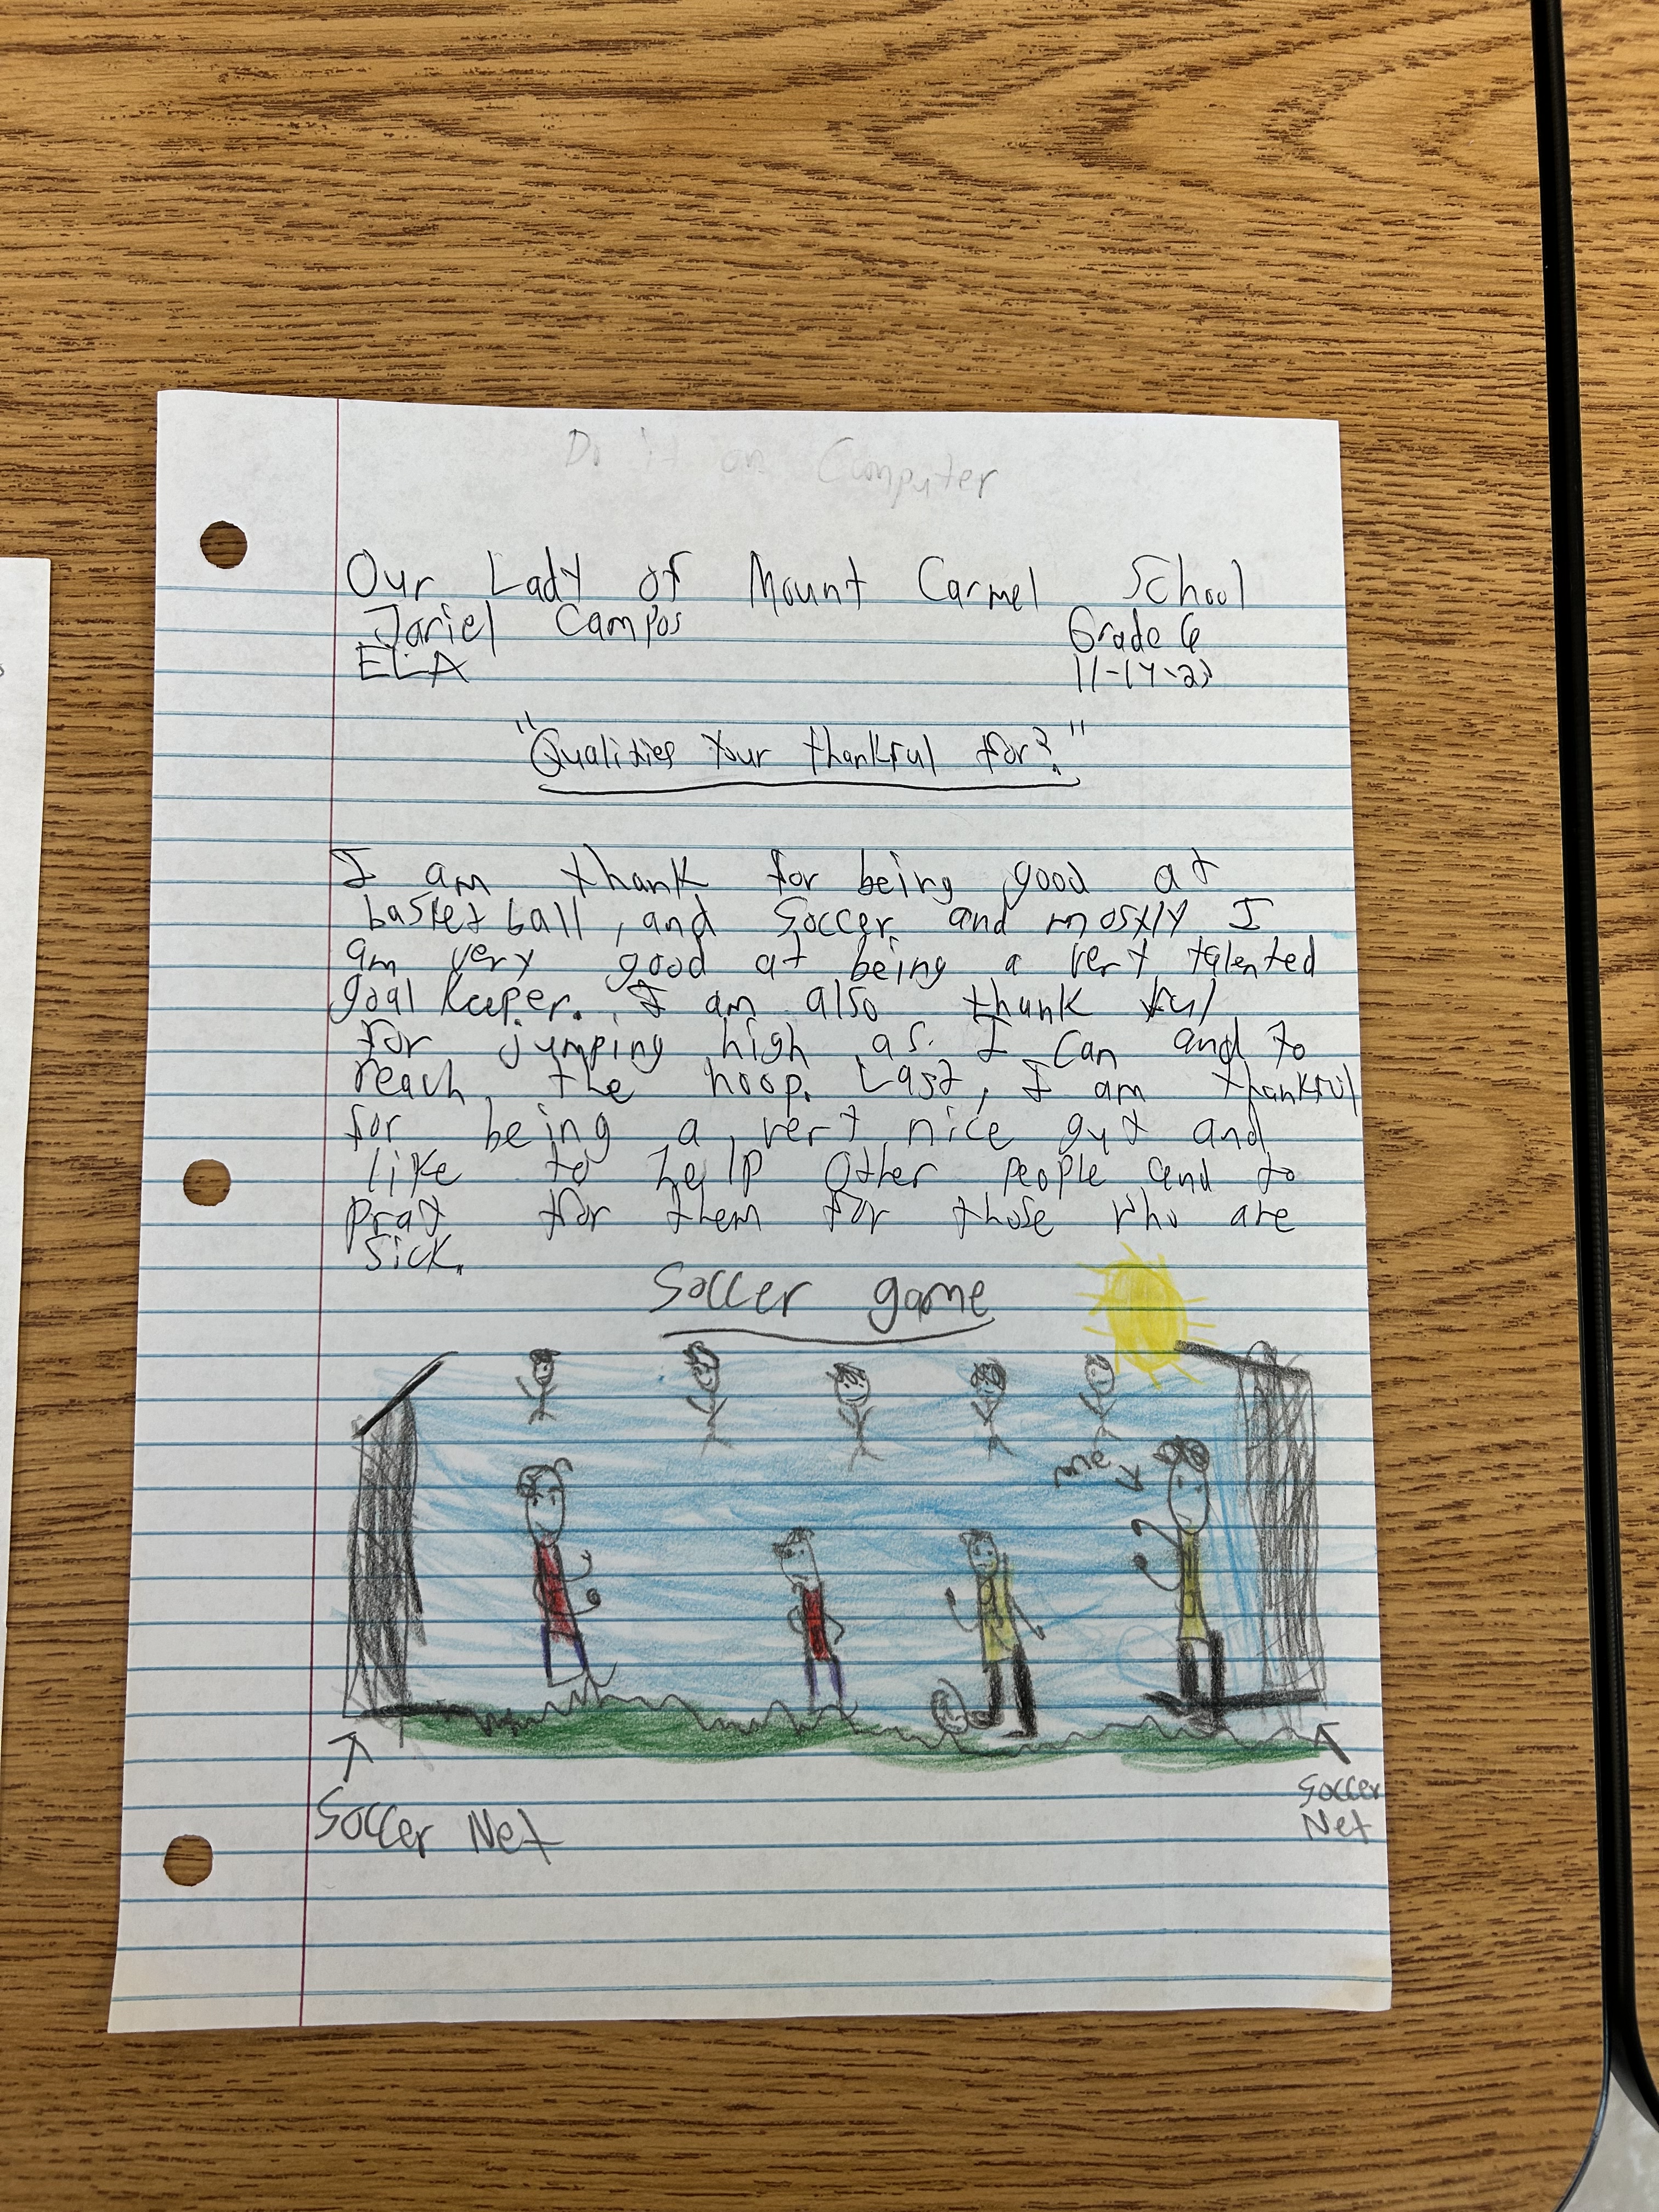 Do it on Computer
Our Lady of Mount Carmel School
Jariel Campos Grade 6
ELA 11-14-23
"Qualities Your thankful for?"
I am thank for being good at
basket ball, and Soccer and mostly I
am very good at being a very talented
goal keeper. I am also thank ful
for jumping high as I can and to
reach the hoop. Last, I am thankful
for being a very nice guy and
like to help other people and to
pray for them for those who are
sick.
Soccer game
me
Soccer Net
Soccer
Net